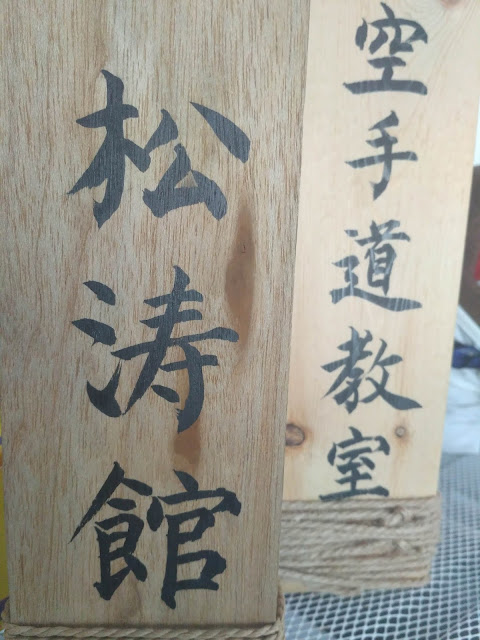 松涛館
空手道教室